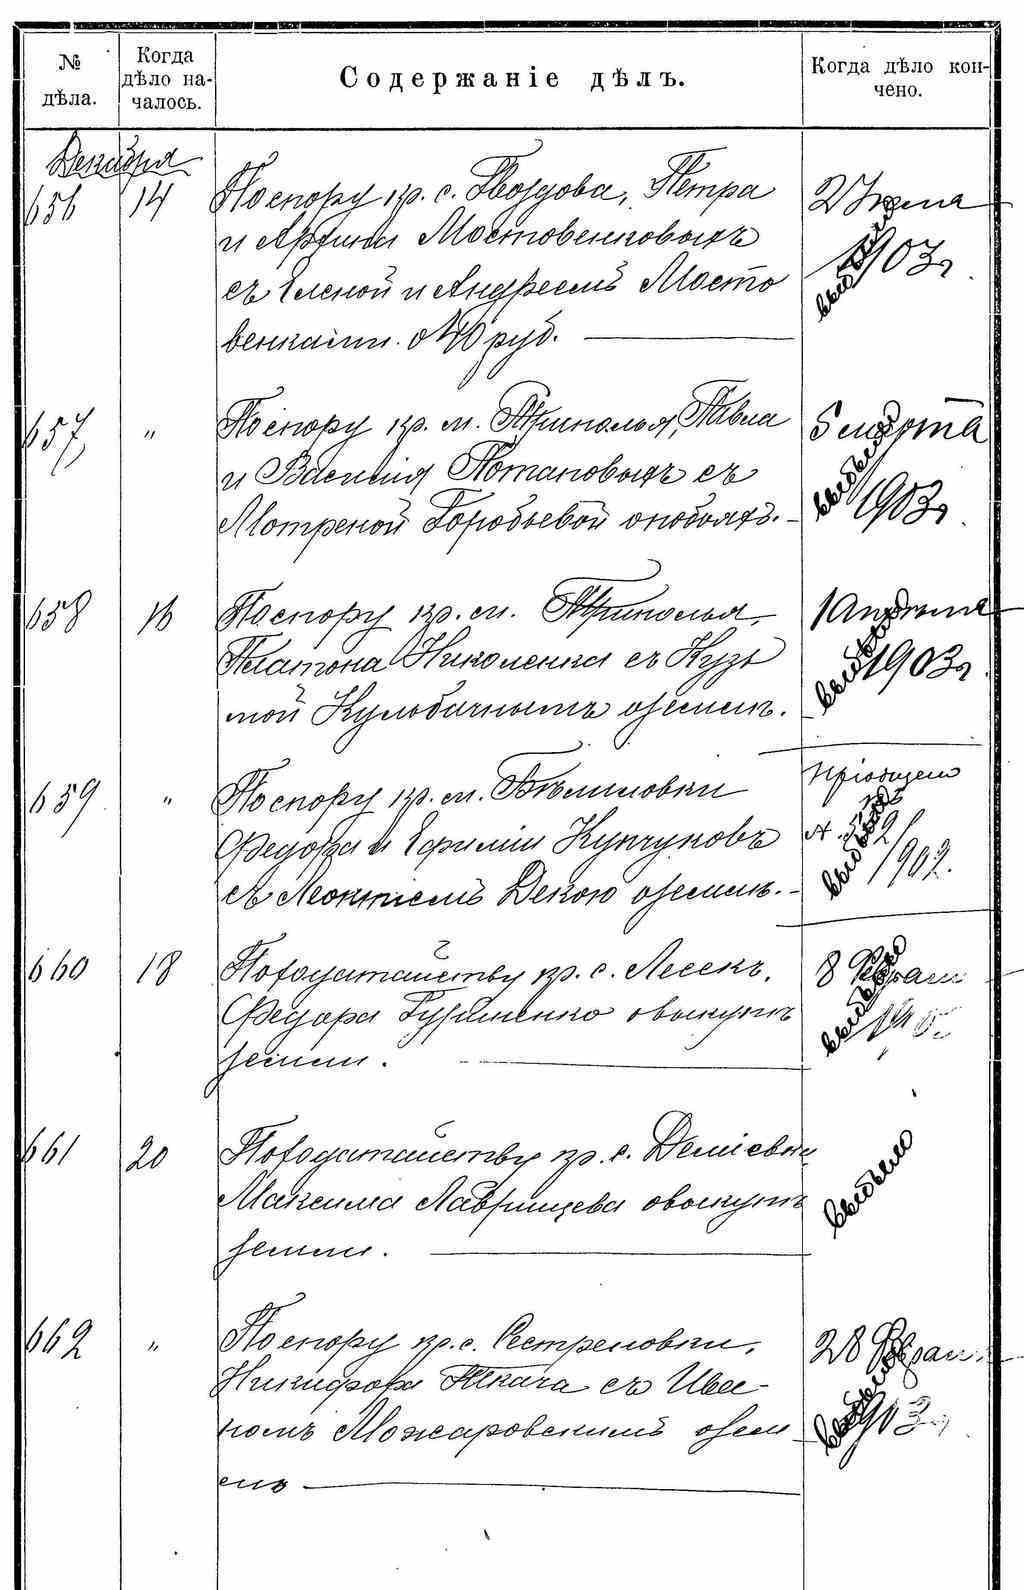 № дѣла.
Когда дѣло на-
чалось.
Содержаніе дѣлъ.
Когда дѣло кон-
чено.
Декабря
656 14 По спору кр. с. Гвоздова, Петра
и Арины Мостовенковыхъ
съ Еленой и Андреемъ Мосто
венками о 40 руб.
2 Іюля
1903 г.
выбыло
657 " По спору кр. м. Триполья, Павла
и Василія Потаповыхъ съ
Мотреной Горобьевой о побояхъ.
5 марта
1903 г
выбыло
658 16 По спору кр. м. Триполья,
Платона Николенка съ Кузь
мой Кулобачнымъ о землѣ.
1 Апрѣля
1903 г.
выбыло
659 " По спору кр. м. Бѣлиловки
Федора и Ефиміи
съ Леонтіемъ Декою о землѣ.
Пріобщено
къ
1902.
выбыло
660 18 По ходатайству кр. с. Лесекъ,
Федора Гузьменко о выкупѣ
земли.
8 Феврал
выбыло
661 20 По ходатайству кр. с. Деміевки
Максима Лаврищева о выкупѣ
земли.
выбыло
662 " По спору кр. с. Сестреновки,
Никифора Ткача съ Ива-
номъ Можаровскимъ о зем
лѣ
28 Феврал.
1903 г.
выбыло